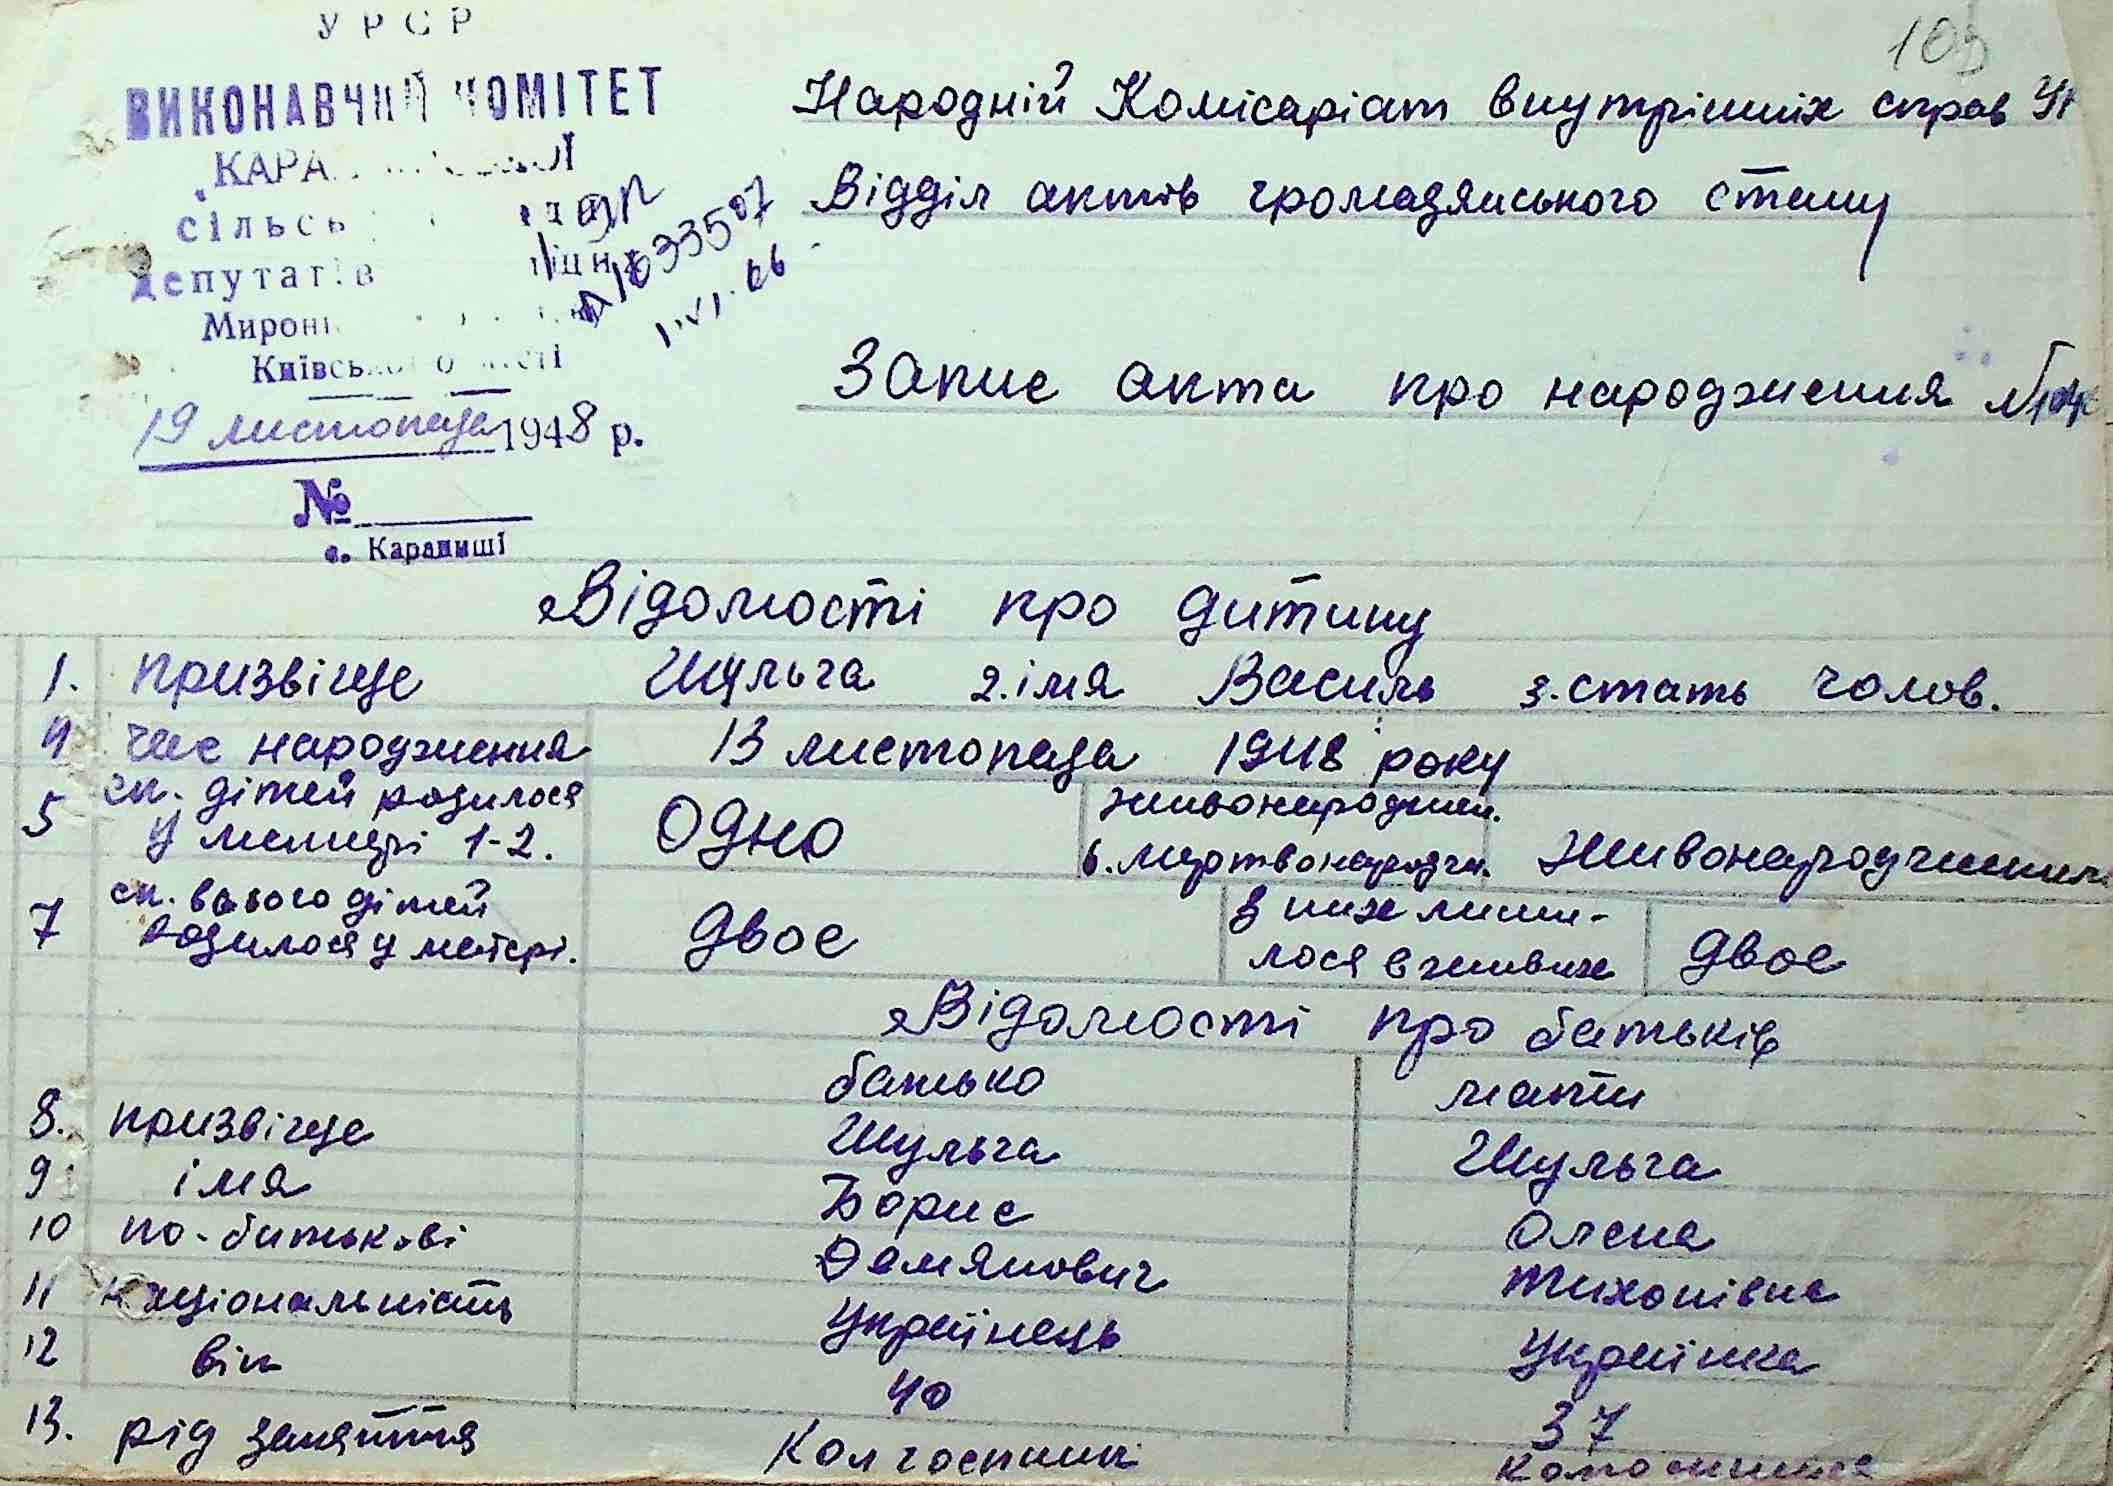 УРСР
ВИКОНАВЧИЙ КОМІТЕТ
депутатів
Київської області
19 листопада 1948 р.
№
с. Карапиші
103
1033507
1.VI.66
Народній Комісаріат внутрішніх справ
Відділ актів громадянського стану
Запис акта про народження №
Відомості про дитину
1. призвіще Шульга 2. імя Василь 3. стать чолов.
4 час народження 13 листопада 1948 року
5 ск. дітей родилося у матері 1-2. Одно 6. живонароджен. мертвонародж. живонародженим
7 ск. всього дітей родилося у матері. двоє з них лиши-лося в живих двоє
Відомості про батьків
батько мати
8. призвіще Шульга Шульга
9 імя Борис Олена
10 по-батькові Демянович Тихонівна
11 національність Українець Українка
12 вік 40 37
13. рід заняття Колгоспник колгоспниця